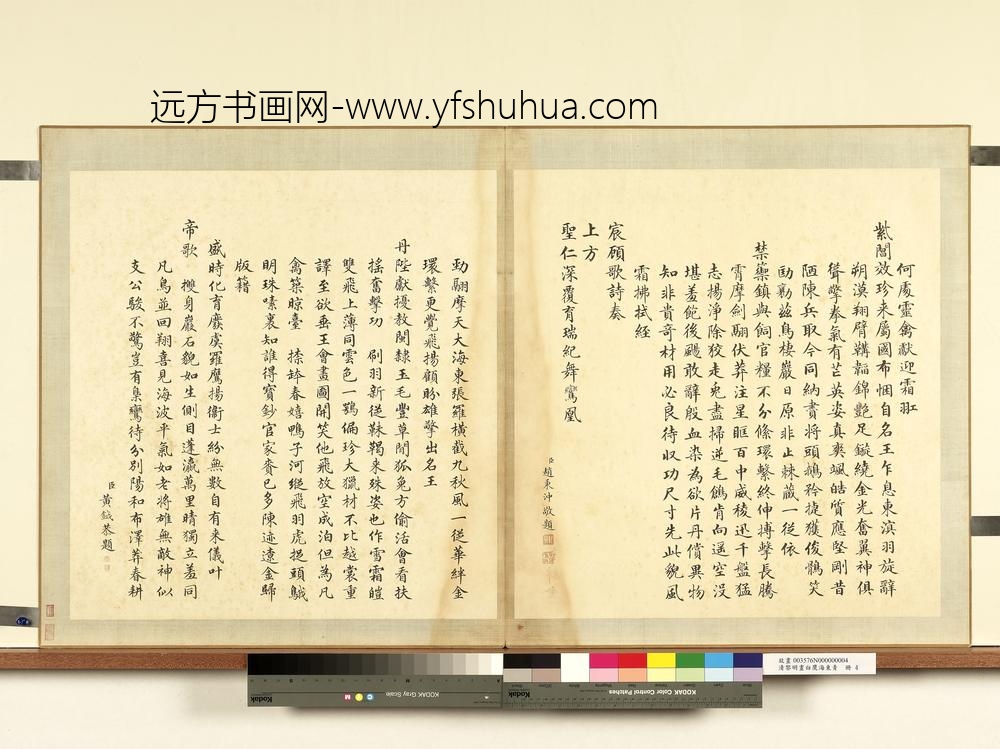 远方书画网-www.yfshuhua.com
何處靈禽獻迎霜羽
紫閣效珍来屬國布悃自名王乍息東濱羽旋辭
朔漠翔臂鞲韜錦艷足鏇繞金光奮翼神俱
聳擎拳氣有芒英姿真爽颯皓質應堅剛昔
陋陳兵取今同納賮將頭鵝矜捷獲俊鶻笑
勍勷茲鳥棲巖日原非止棘蔵一從依
禁籞鎮與飼官糧不分絛環繫終伸搏擊長騰
霄摩劍翮伏莽注星眶百中威稜迅千盤猛
志揚淨除狡走兎盡掃逆毛鶬肯向遥空没
堪羞飽後颺敢辭殷血染為欲片丹償異物
知非貴奇材用必良待收功尺寸先此貌風
霜拂拭經
宸顧歌詩奏
上方
聖仁深覆育瑞紀舞鸞凰
臣趙秉沖敬題
勁翮摩天大海東張羅橫截九秋風一從華絆金
環繫更覺飛揚顧盼雄擎出名王
丹陛獻擾教閑隸玉毛豐草間狐兔方偷活會看扶
搖奮擊功 刷羽新從靺鞨来殊姿也作雪霜皚
雙飛上薄同雲色一鶚偏珍大獵材不比越裳重
譯至欲垂王會畫圖開笑他飛放空成泊但為凡
禽築晾臺 捺鉢春嬉鴨子河縱飛羽虎捉頭鵝
明珠嗉裏知誰得寶鈔官家賚已多陳迹遼金歸
版籍
盛時化育麽虞羅鷹揚衞士紛無數自有来儀叶
帝歌 擻身巖石貌如生側目蓬瀛萬里晴獨立羞同
凡鳥並回翔喜見海波平氣如老將雄無敵神似
支公駿不驚豈有梟鸞待分別陽和布澤莽春耕
臣黄鉞恭題
KODAK Gray Scale
Kodak
KODAK Color Control Patches
故畫 003576N000000004
清黎明畫白鷹海東青 冊 4